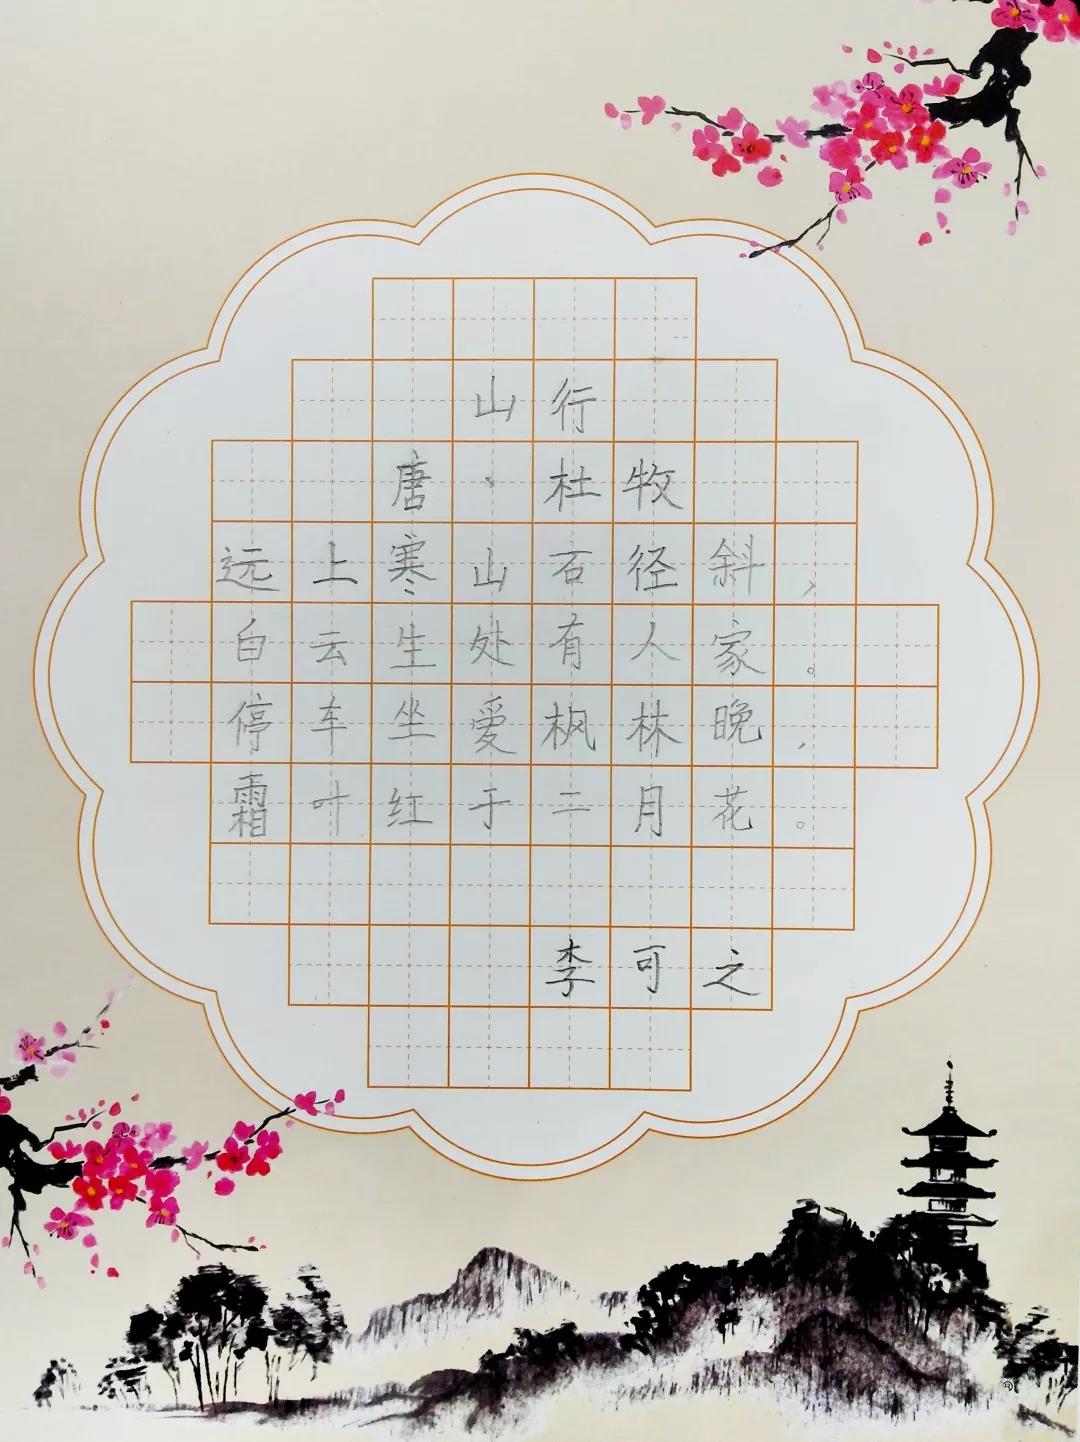 山行
唐·杜牧
远上寒山石径斜，
白云生处有人家。
停车坐爱枫林晚，
霜叶红于二月花。
李可之